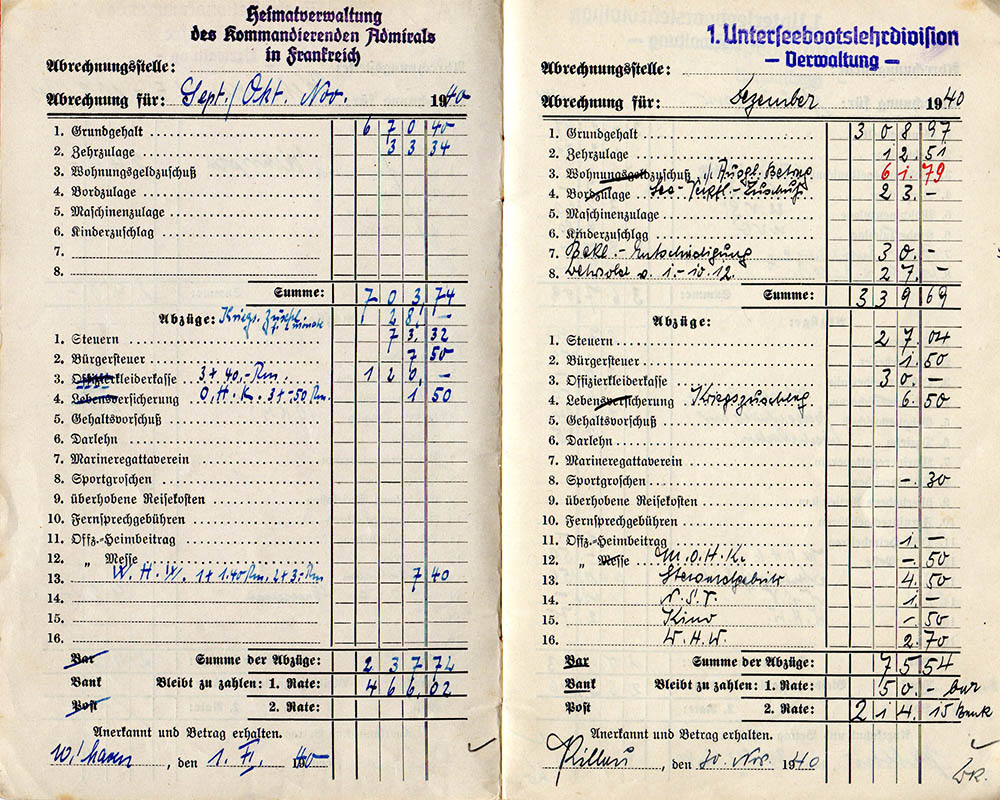 Heimatverwaltung
des Kommandierenden Admirals
in Frankreich
Abrechnungsstelle:
Abrechnung für: Sept./Okt. Nov. 1940
1. Grundgehalt 670 40
2. Zehrzulage 33 34
3. Wohnungsgeldzuschuß
4. Bordzulage
5. Maschinenzulage
6. Kinderzuschlag
7.
8.
Summe: 703,74
Abzüge: 28,–
1. Steuern 73,32
2. Bürgersteuer 7 50
3. Offizierkleiderkasse 3 + 40,- Rm. 120,–
4. Lebensversicherung O.H.K. 3 + -50 Rm. 1 50
5. Gehaltsvorschuß
6. Darlehn
7. Marineregattaverein
8. Sportgroschen
9. überhobene Reisekosten
10. Fernsprechgebühren
11. Offz.-Heimbeitrag
12. „ Messe
13. W.H.W. 1 + 1.40 Rm. 2 + 3,- Rm 7 40
14.
15.
16.
Bar Summe der Abzüge: 237 74
Bank Bleibt zu zahlen: 1. Rate: 466,02
Post 2. Rate:
Anerkannt und Betrag erhalten.
W'haven, den 1. XI. 1940
1. Unterseebootslehrdivision
— Verwaltung —
Abrechnungsstelle:
Abrechnung für: Dezember 1940
1. Grundgehalt 308 97
2. Zehrzulage 12.51
3. Wohnungsgeldzuschuß Betrag. 61.79
4. Bordzulage See-Verpfl.-Zuschuß 23.–
5. Maschinenzulage
6. Kinderzuschlag
7. Bekl.-Entschädigung 30.–
8. 1.-10.12. 27.–
Summe: 339 69
Abzüge:
1. Steuern 27.04
2. Bürgersteuer 1.50
3. Offizierkleiderkasse 30.–
4. Lebensversicherung Kriegszuschlag. 6.50
5. Gehaltsvorschuß
6. Darlehn
7. Marineregattaverein
8. Sportgroschen –.30
9. überhobene Reisekosten
10. Fernsprechgebühren
11. Offz.-Heimbeitrag 1.–
12. „ Messe M.O.H.K. –.50
13. 4.50
14. N.S.V. 1.–
15. Kino –.50
16. W.H.W. 2.70
Bar Summe der Abzüge: 75 54
Bank Bleibt zu zahlen: 1. Rate: 50.– bar
Post 2. Rate: 214.15 Bank
Anerkannt und Betrag erhalten.
Pillau, den 30 Nov. 1940